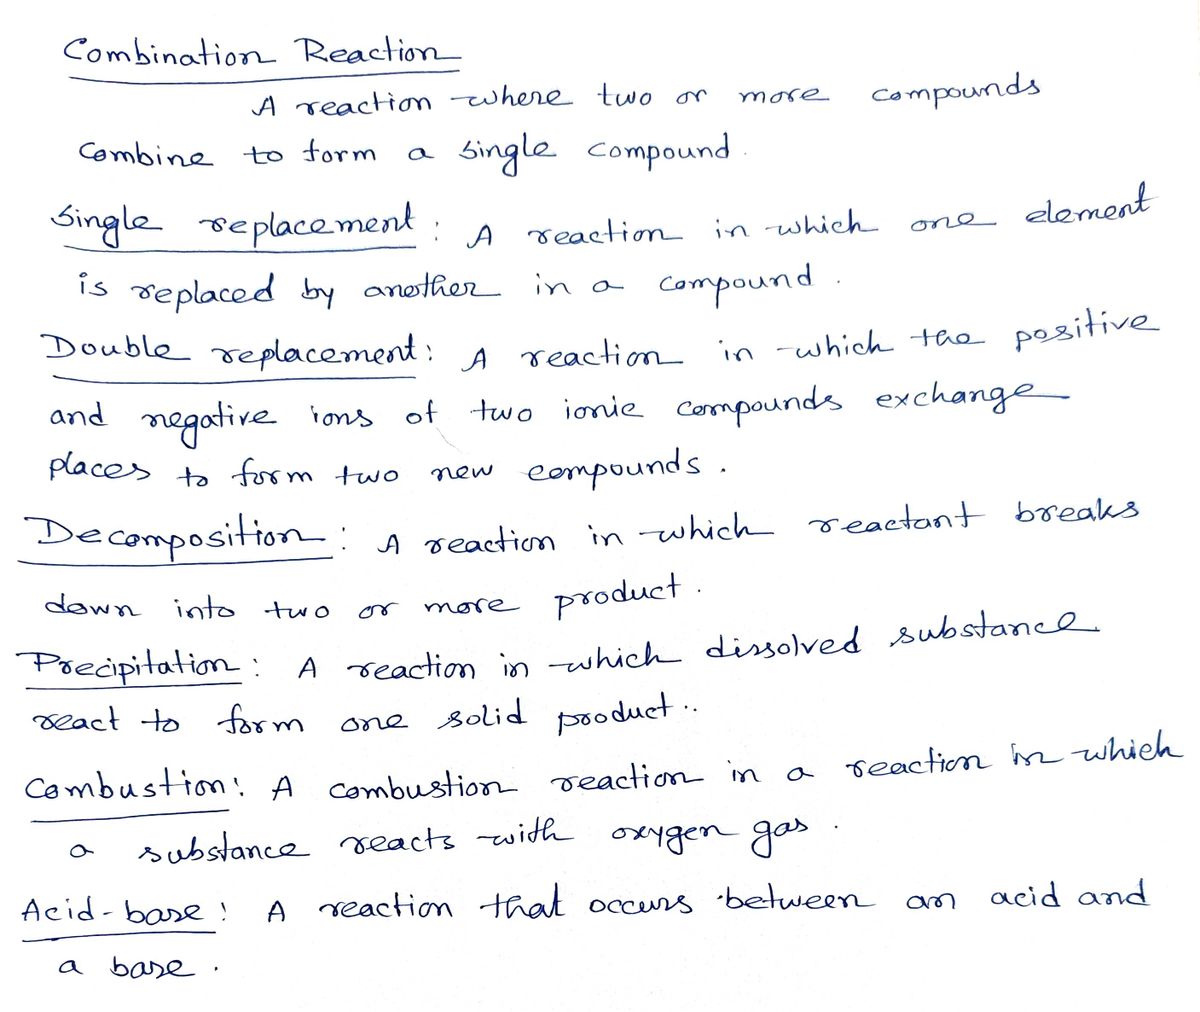 Combination Reaction
A reaction where two or more compounds
combine to form a single compound.
Single replacement: A reaction in which one element
is replaced by another in a compound.
Double replacement: A reaction in which the positive
and negative ions of two ionic compounds exchange
places to form two new compounds.
Decomposition: A reaction in which reactant breaks
down into two or more product.
Precipitation: A reaction in which dissolved substance
react to form one solid product..
Combustion: A combustion reaction in a reaction in which
a substance reacts with oxygen gas.
Acid-base: A reaction that occurs between an acid and
a base.